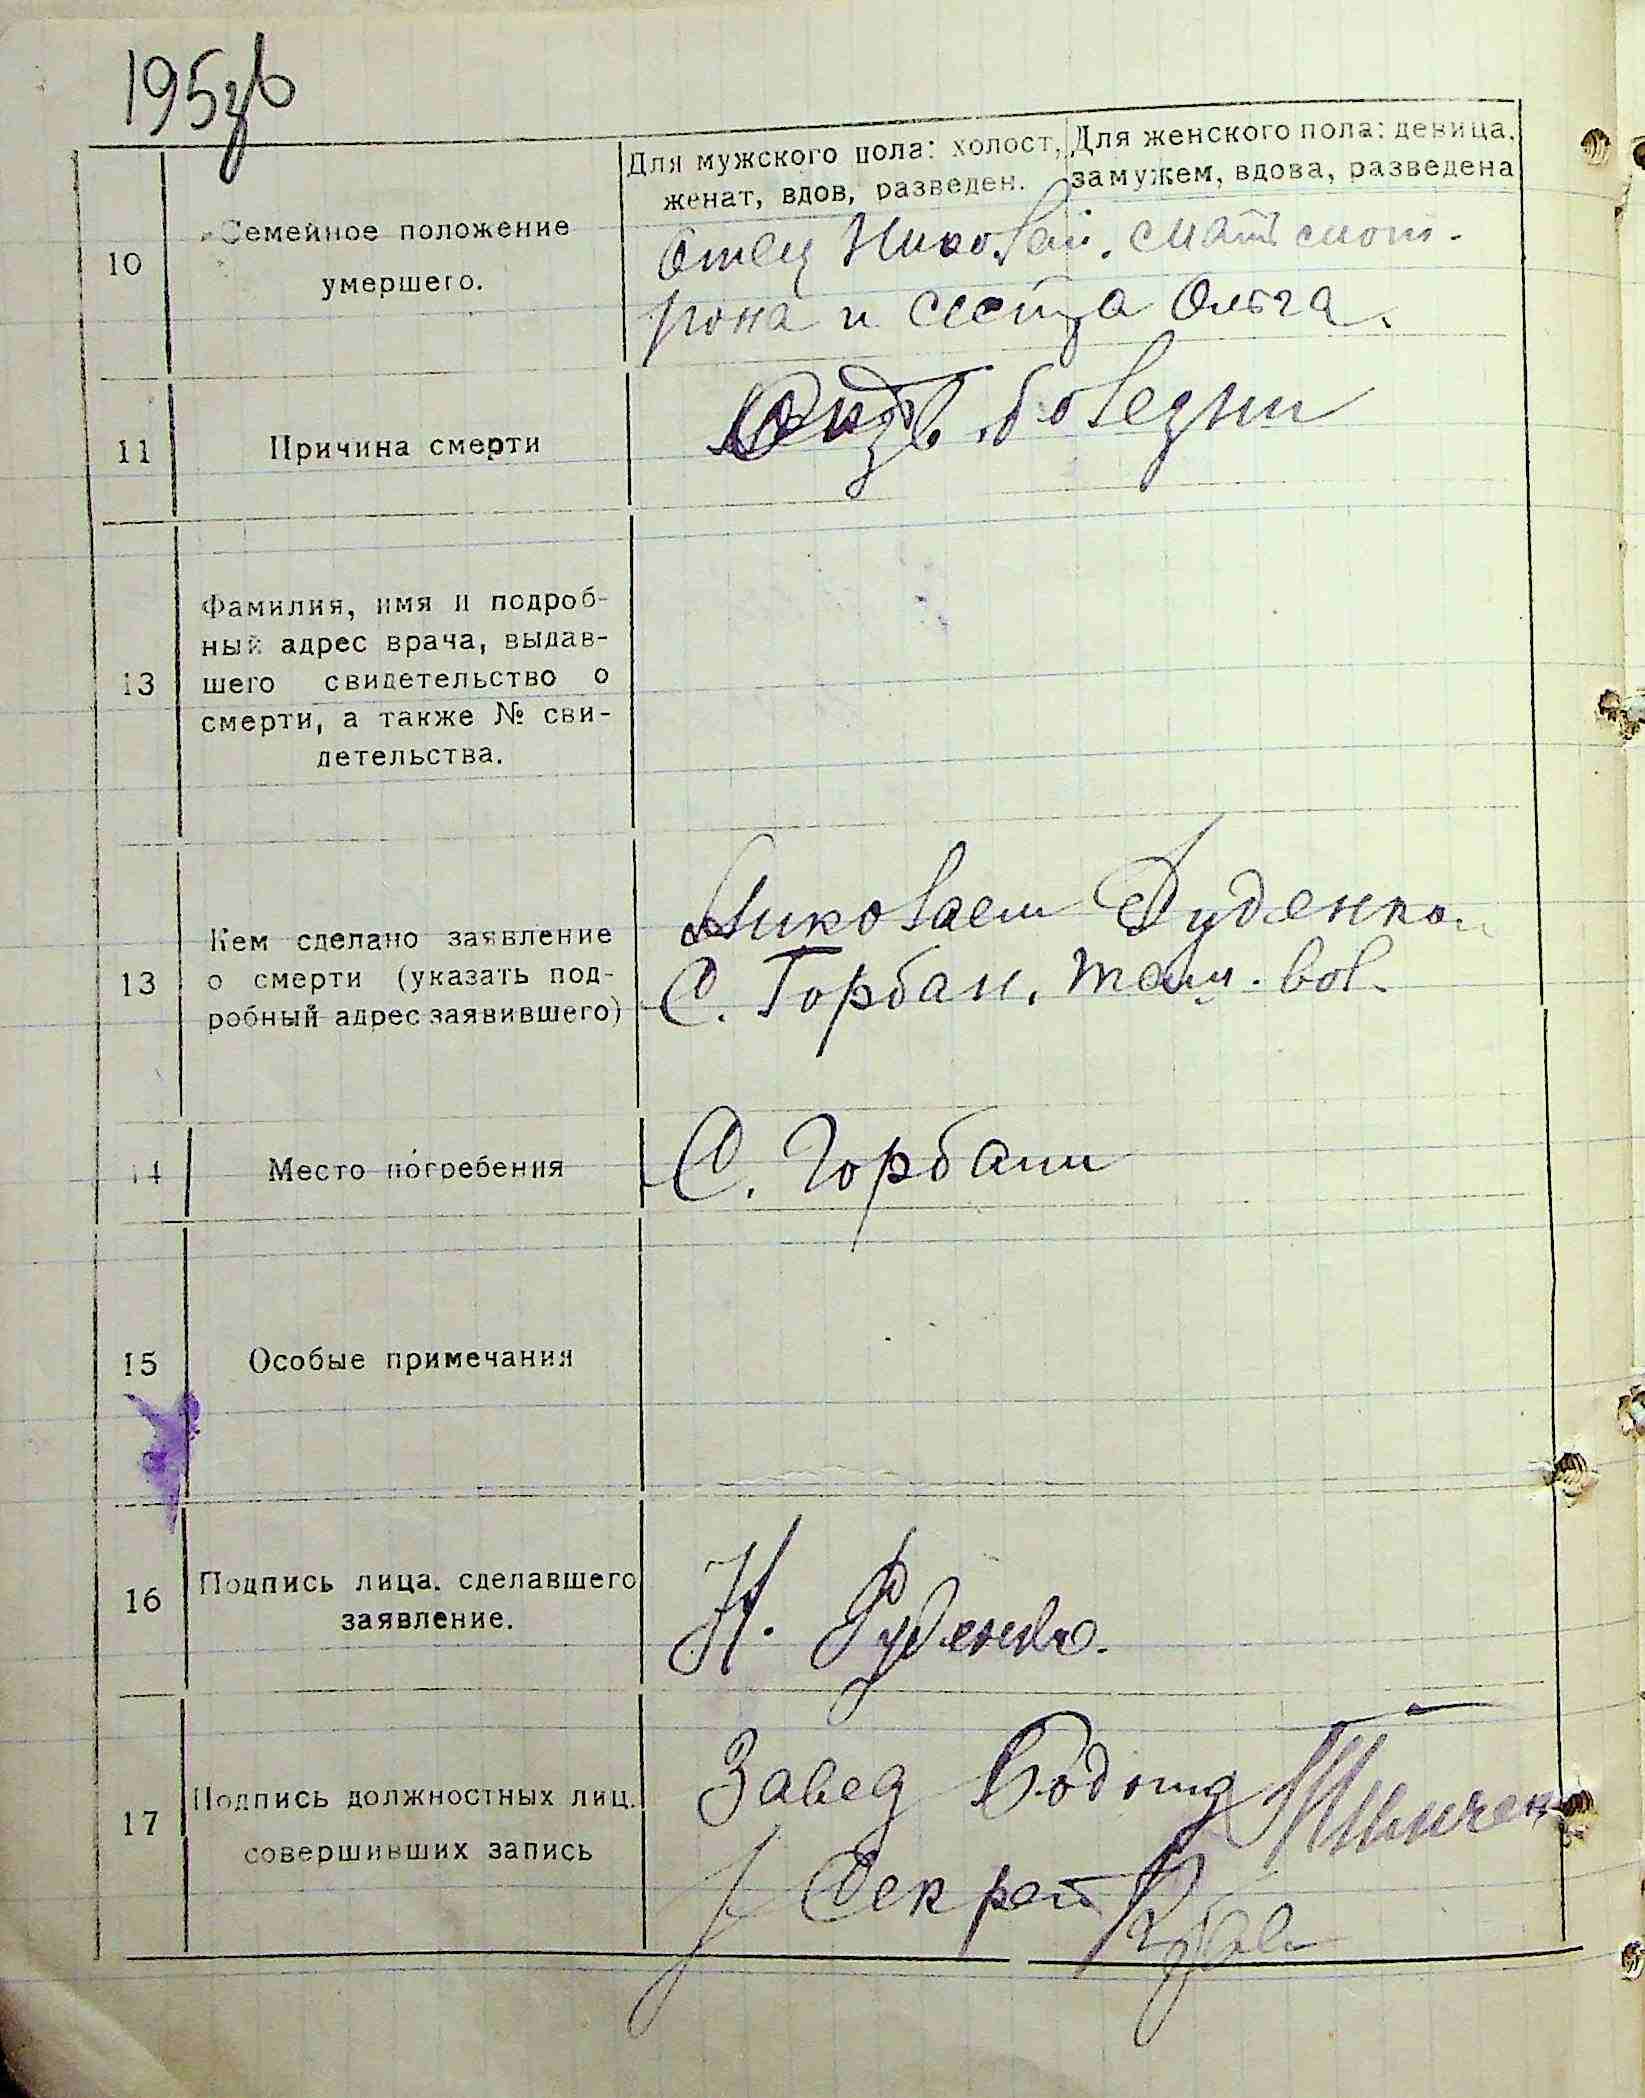 195зв
Для мужского пола: холост,
женат, вдов, разведен.
Для женского пола: девица,
замужем, вдова, разведена
10
Семейное положение
умершего.
Отец Николай. Мать Мот-
рона и сестра Ольга.
11
Причина смерти
От болезни
13
Фамилия, имя и подроб-
ный адрес врача, выдав-
шего свидетельство о
смерти, а также № сви-
детельства.
13
Кем сделано заявление
о смерти (указать под-
робный адрес заявившего)
Николаем Руденко
С. Горбан. вол.
14
Место погребения
С. Горбани
15
Особые примечания
16
Подпись лица, сделавшего
заявление.
Н. Руденко.
17
Подпись должностных лиц,
совершивших запись
Завед
Секрет